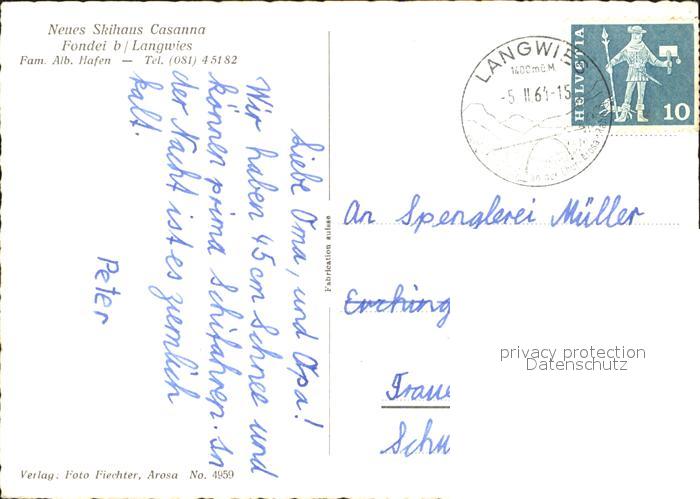 Neues Skihaus Casanna
Fondei b/Langwies
Fam. Alb. Hafen — Tel. (081) 4 51 82
Liebe Oma, und Opa!
Wir haben 45 cm Schnee und
können prima Schifahren. In
der Nacht ist es ziemlich
kalt.
Peter
Verlag: Foto Fiechter, Arosa No. 4959
Fabrication suisse
LANGWIES
1400 m ü. M.
-5. II. 64-15
HELVETIA
10
An Spenglerei Müller
Eurching
Fraue
Schu
privacy protection
Datenschutz